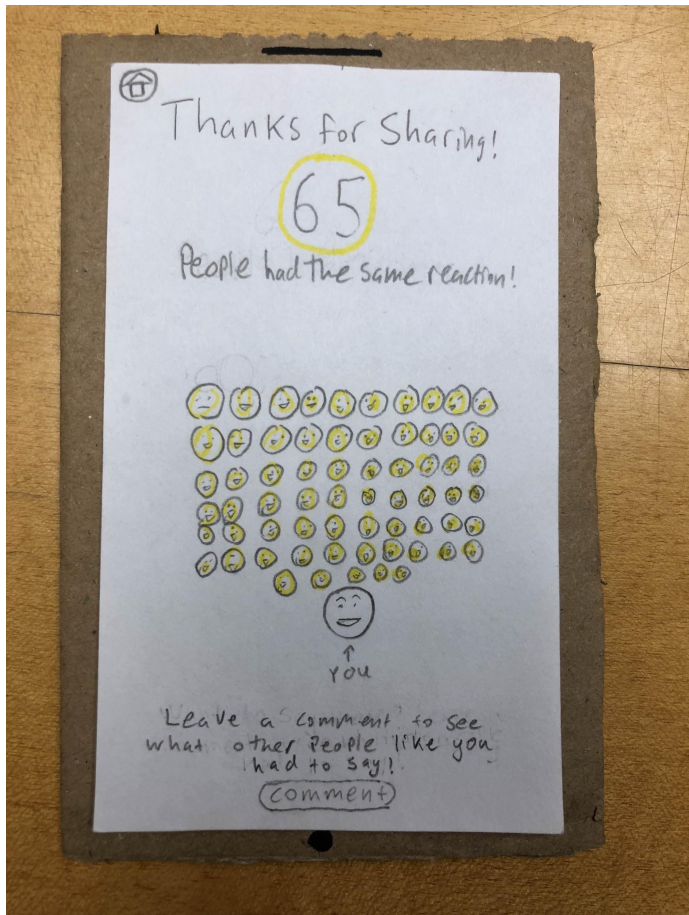 Thanks for Sharing!
65
People had the same reaction!
You
Leave a comment to see
what other People like you
had to say!
comment